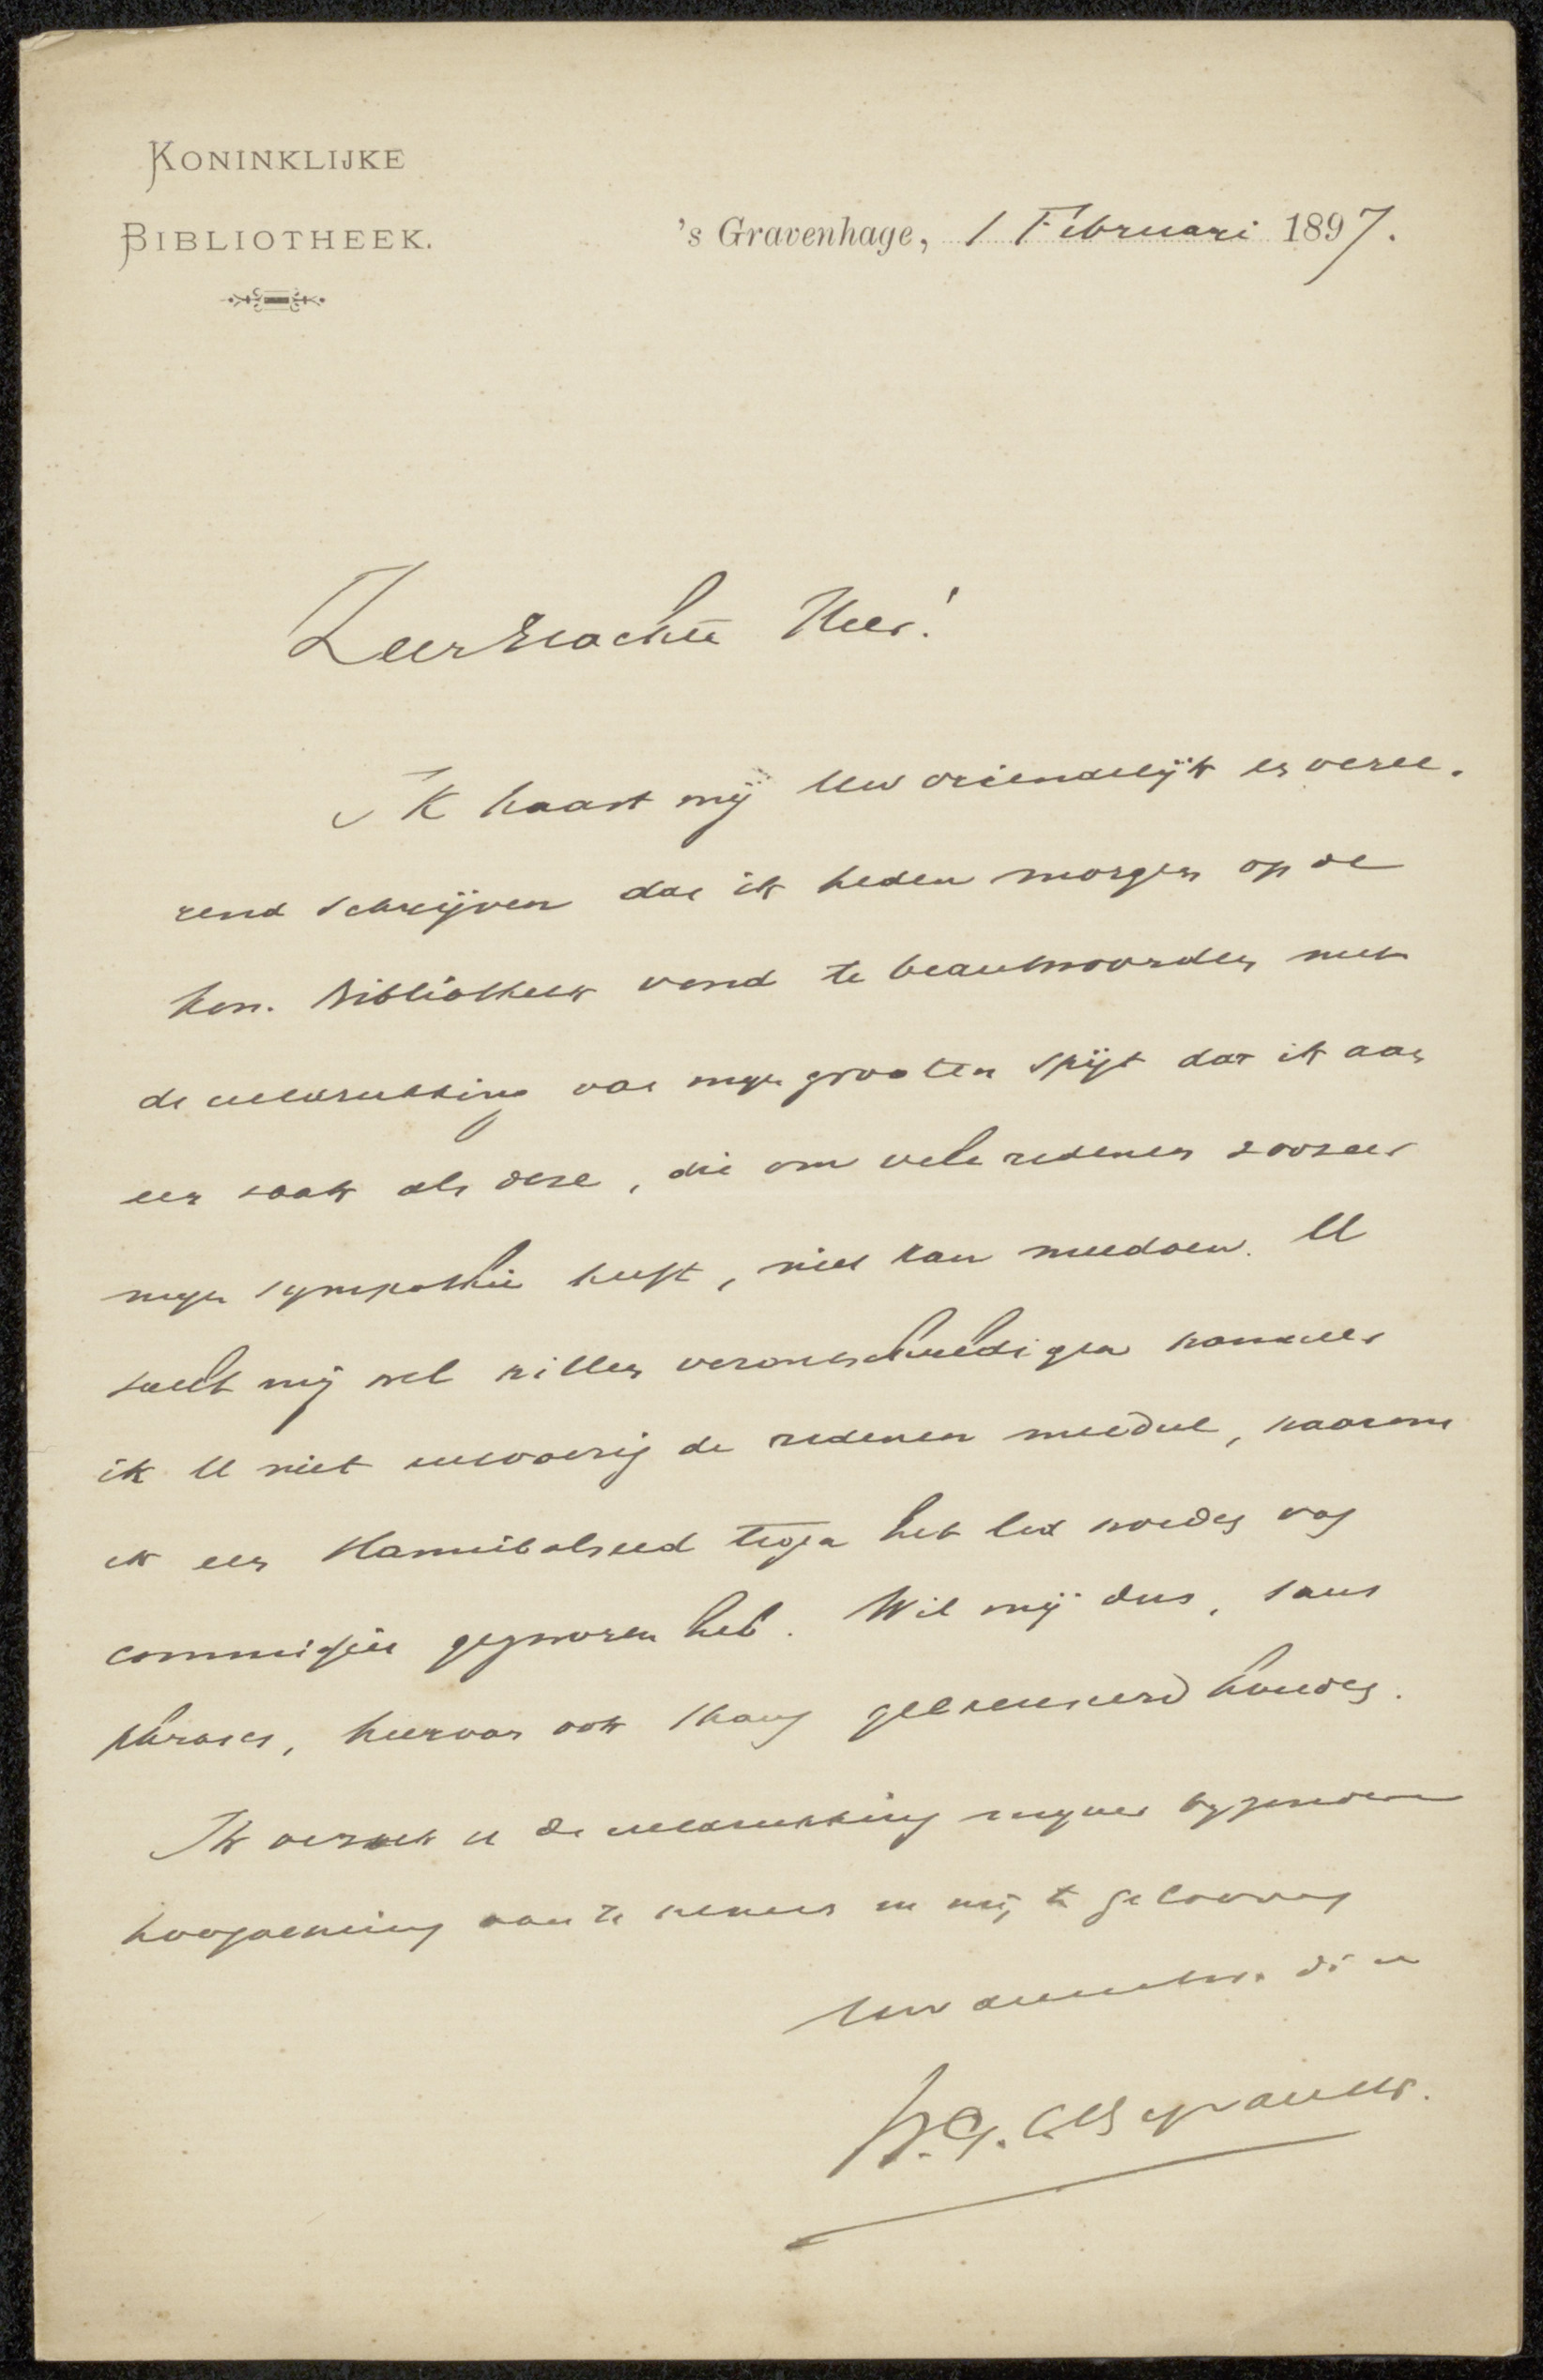 KONINKLIJKE
BIBLIOTHEEK.
's Gravenhage, 1 Februari 1897.
Zeer Geachte Heer!
Ik haast mij Uw vriendelijk en veree-
rend schrijven dat ik heden morgen op de
Kon. Bibliotheek vond te beantwoorden met
de uitdrukking van mijn grooten spijt dat ik aan
een zaak als deze, die om vele redenen zoozeer
mijn sympathie heeft, niet kan meedoen. U
zult mij wel willen verontschuldigen wanneer
ik U niet uitvoerig de redenen meedeel, waarom
ik een Hannibalseed tegen het lid worden van
commissiën gezworen heb. Wil mij dus, sans
phrases, hiervan ook thans geëxcuseerd houden.
Ik verzoek u de uitdrukking mijner bijzondere
hoogachting aan te nemen en mij te gelooven
Uw dienstw. dr
W. G. C. Byvanck.